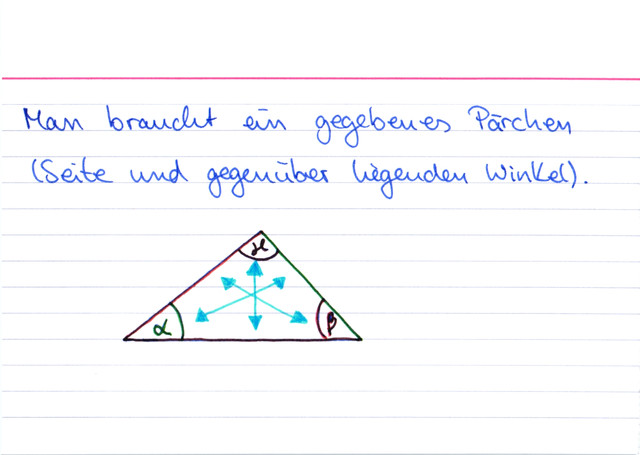 Man braucht ein gegebenes Pärchen
(Seite und gegenüber liegenden Winkel).
γ
α
β